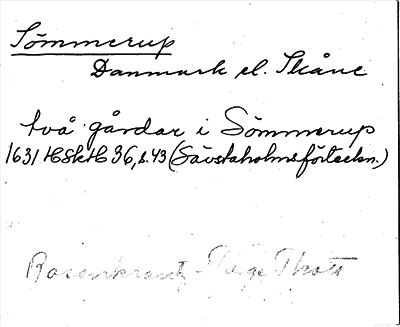 Sömmerup
Danmark el. Skåne
två gårdar i Sömmerup
1631 HSkH 36, s. 43 (Sävstaholmsförteckn.)
Rosenkrantz - Tage Thott